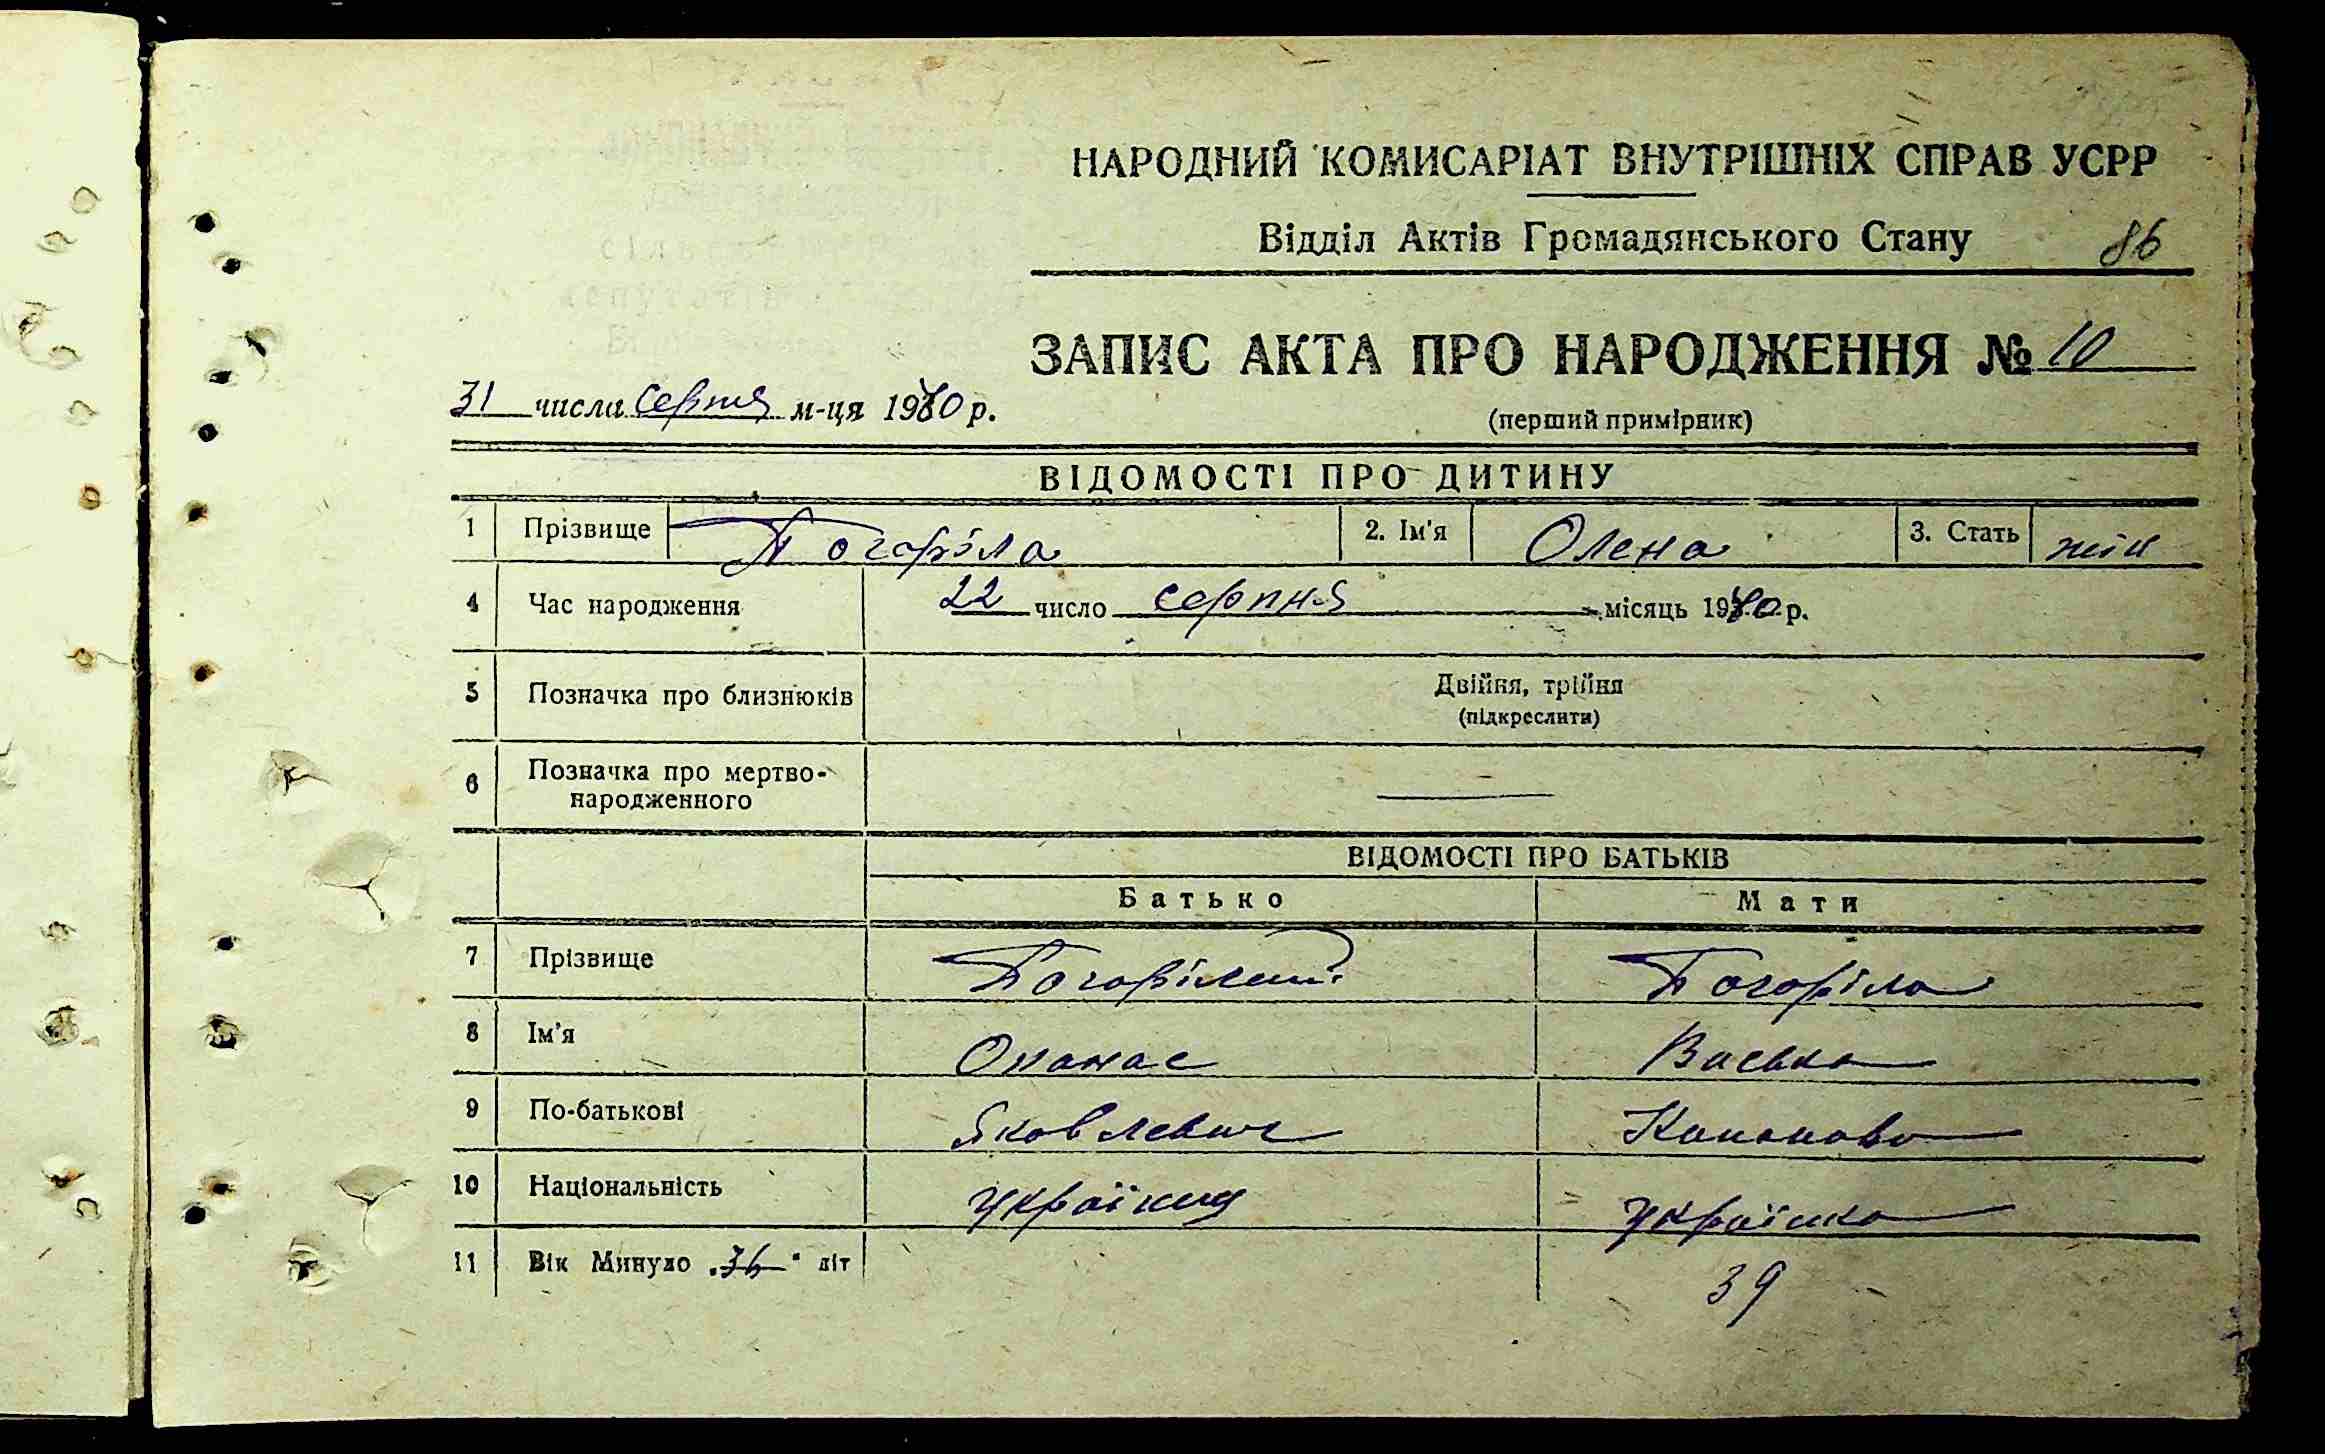 НАРОДНИЙ КОМИСАРІАТ ВНУТРІШНІХ СПРАВ УСРР
Відділ Актів Громадянського Стану 86
ЗАПИС АКТА ПРО НАРОДЖЕННЯ № 10
31 числа серпня м-ця 1940 р.
(перший примірник)
ВІДОМОСТІ ПРО ДИТИНУ
1 Прізвище Погоріла 2. Ім'я Олена 3. Стать жін
4 Час народження 22 число серпня місяць 1940 р.
5 Позначка про близнюків Двійня, трійня
(підкреслити)
6 Позначка про мертво-
народженного —
ВІДОМОСТІ ПРО БАТЬКІВ
Батько Мати
7 Прізвище Погорілий Погоріла
8 Ім'я Опанас Васька
9 По-батькові Яковлевич Кононова
10 Національність українец українка
11 Вік Минуло „36" літ 39